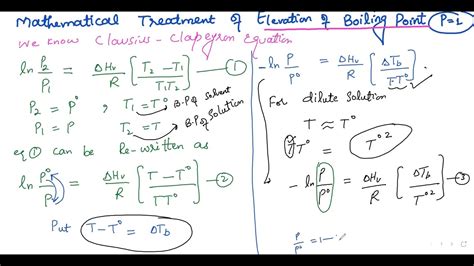 Mathematical Treatment of Elevation of Boiling Point (P=1
We know Clausius - Clapeyron Equation
ln P₂/P₁ = ΔHv/R [T₂ - T₁ / T₁T₂] — ①
P₂ = P° , T₁ = T° → B.P of solvent
P₁ = P , T₂ = T → B.P of Solution
eq ① can be Re-written as
ln P°/P = ΔHv/R [T - T° / TT°] — ②
Put T - T° = ΔTb
- ln P/P° = ΔHv/R [ΔTb / T T°]
For dilute Solution
T ≈ T°
TT° = T°²
- ln P/P° = ΔHv/R [ΔTb / T°²] — ③
P/P° = 1 —